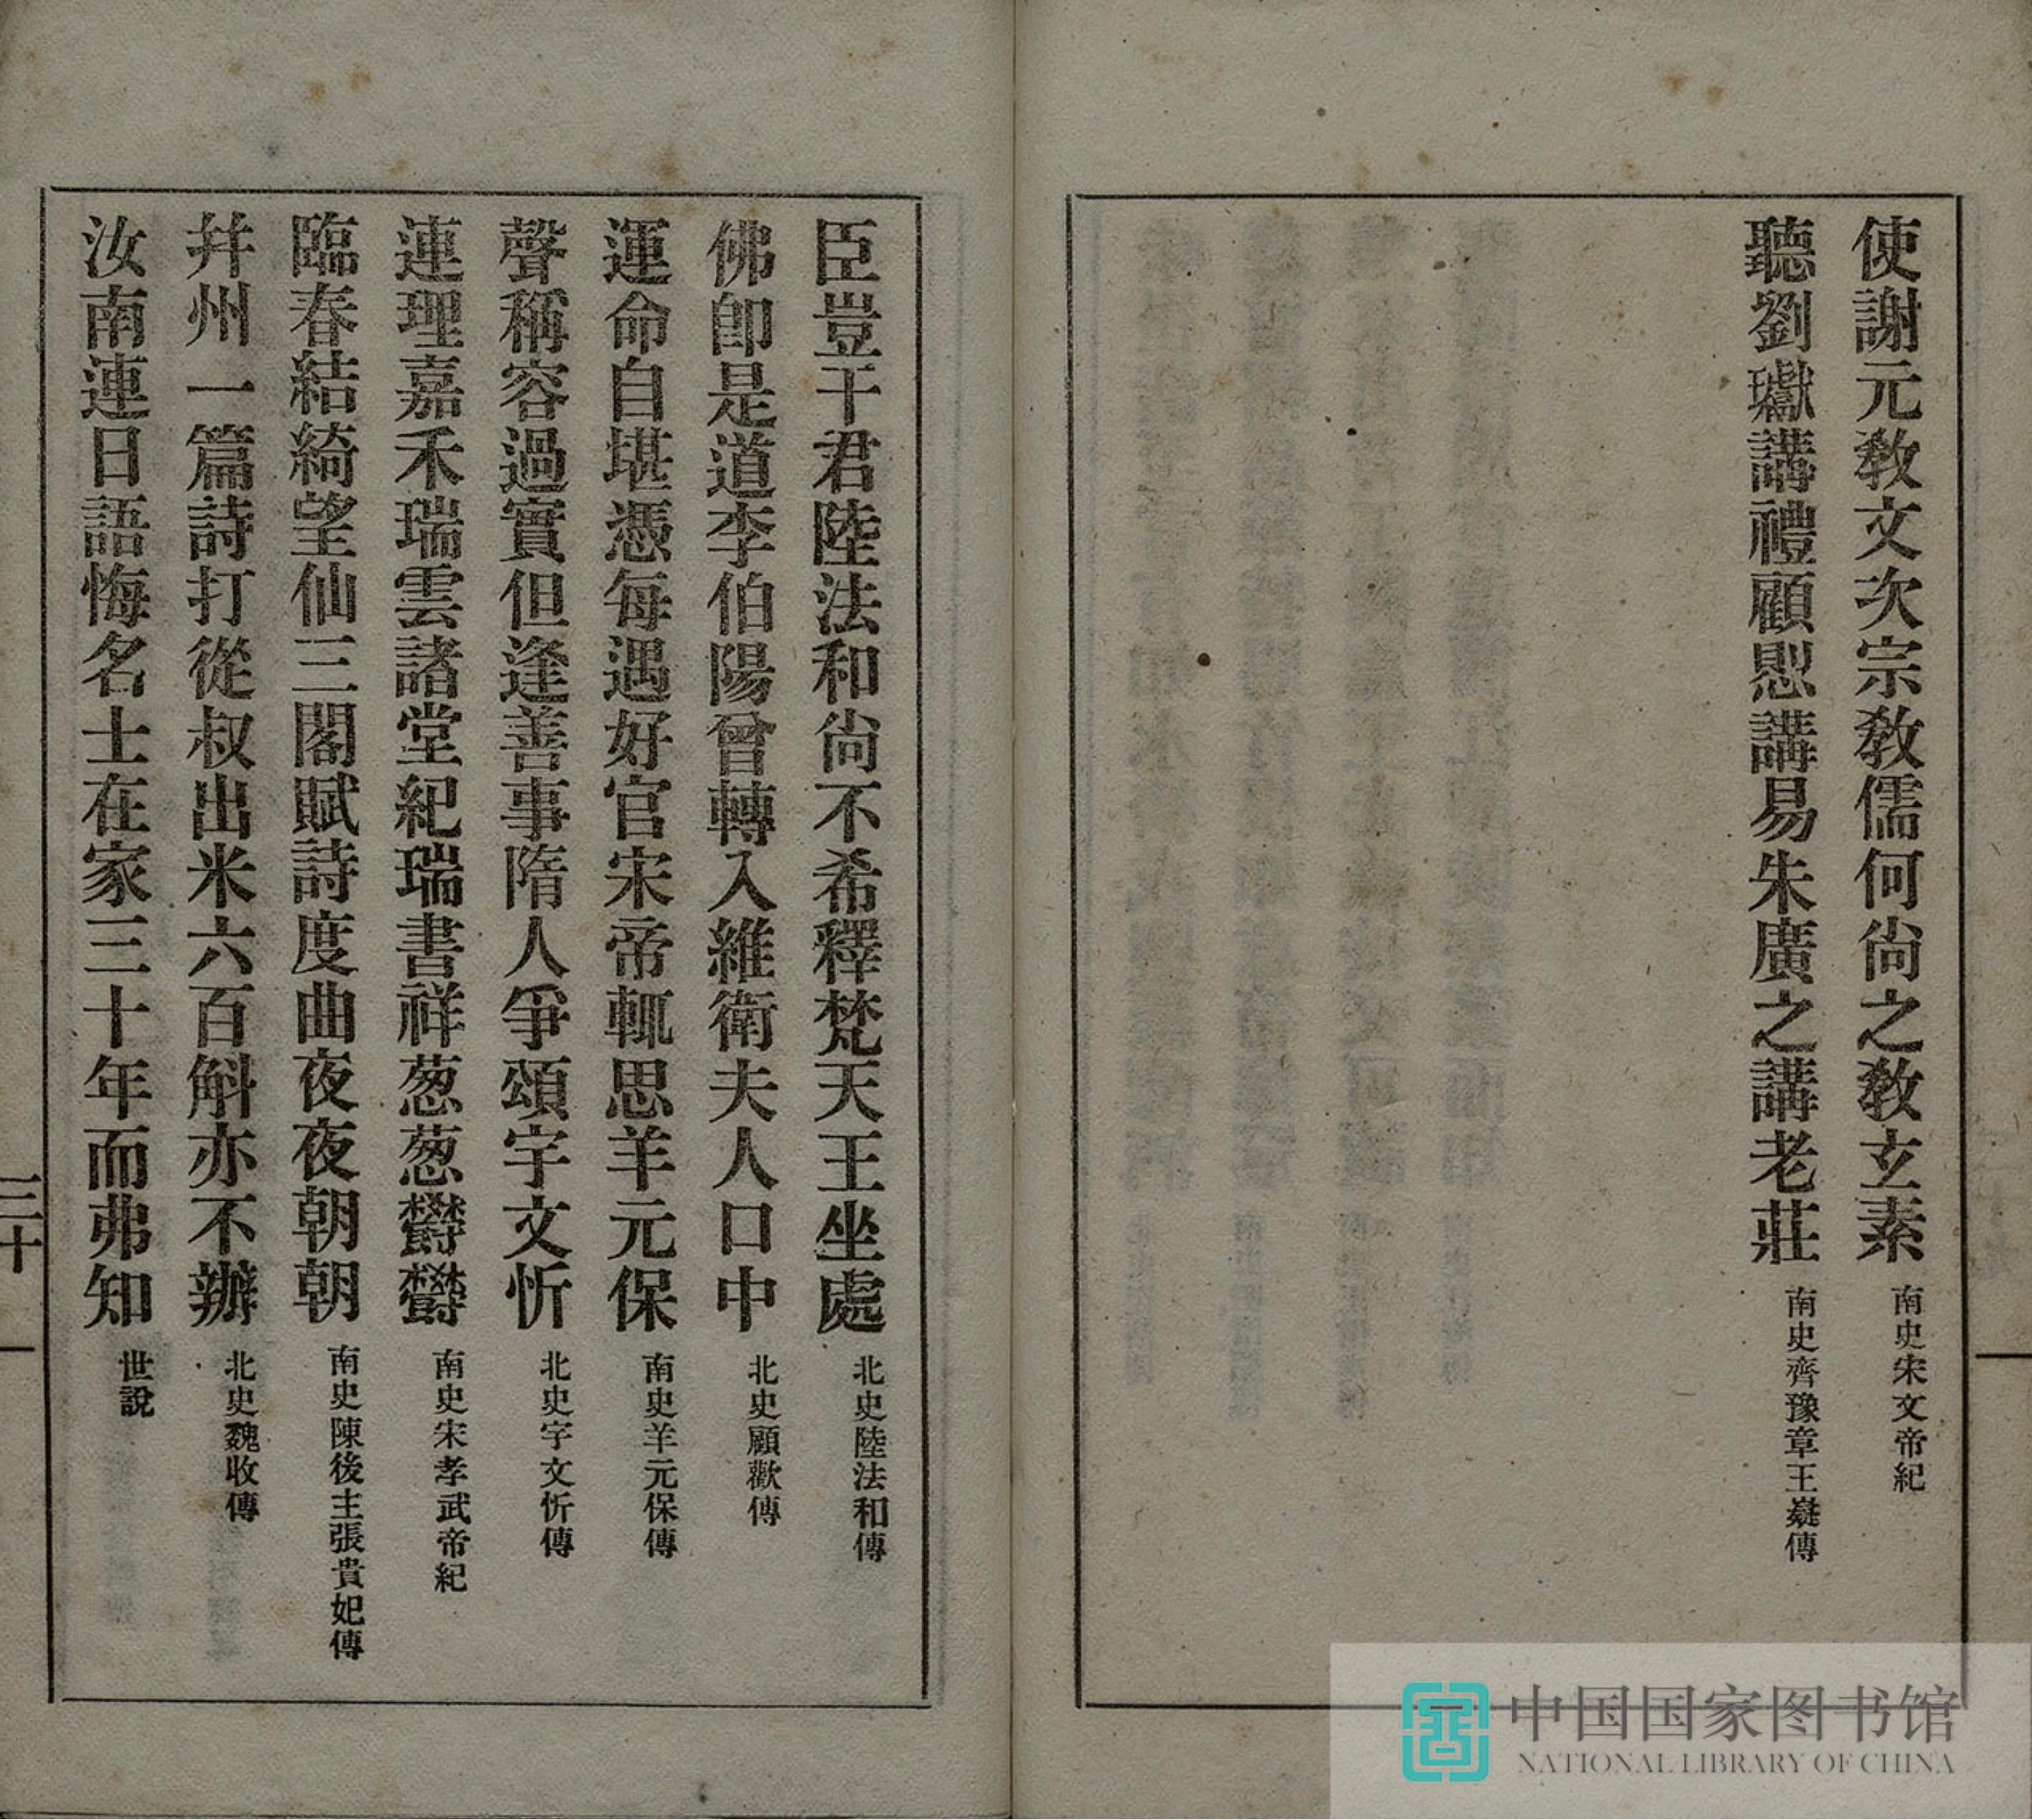 使謝元教文次宗教儒何尙之教玄素 南史宋文帝紀
聽劉瓛講禮顧恖講易朱廣之講老莊 南史齊豫章王嶷傳
臣豈干君陸法和尙不希釋梵天王坐處 北史陸法和傳
佛卽是道李伯陽曾轉入維衛夫人口中 北史顧歡傳
運命自堪憑每遇好官宋帝輒思羊元保 南史羊元保傳
聲稱容過實但逢善事隋人爭頌宇文忻 北史宇文忻傳
連理嘉禾瑞雲諸堂紀瑞書祥葱葱鬱鬱 南史宋孝武帝紀
臨春結綺望仙三閣賦詩度曲夜夜朝朝 南史陳後主張貴妃傳
幷州一篇詩打從叔出米六百斛亦不辦 北史魏收傳
汝南連日語悔名士在家三十年而弗知 世說
三十
中国国家图书馆
NATIONAL LIBRARY OF CHINA